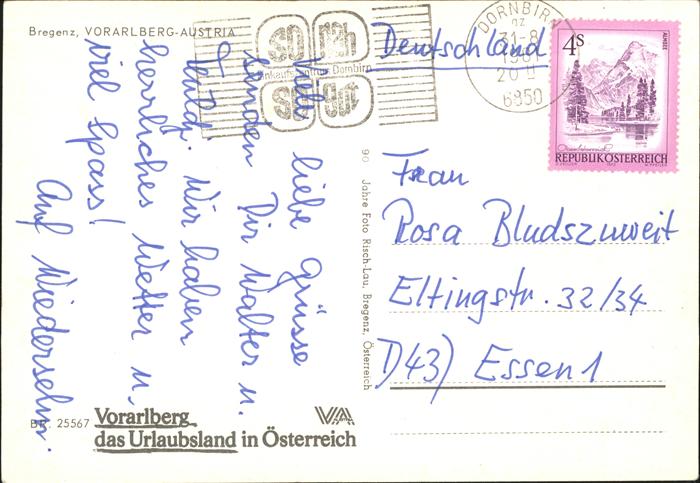 Bregenz, VORARLBERG-AUSTRIA
Viele liebe Grüsse
senden Dir Walter u.
Puldi. Wir haben
herrliches Wetter u.
viel Spass!
Auf Wiedersehn.
Einkaufszentrum Dornbirn
DORNBIRN
6850
Deutschland
4S
ALMSEE
REPUBLIK ÖSTERREICH
90 Jahre Foto Risch-Lau, Bregenz, Österreich
Frau
Rosa Bludszuweit
Eltingstr. 32/34
D43) Essen 1
BR. 25567
Vorarlberg
das Urlaubsland in Österreich
VA